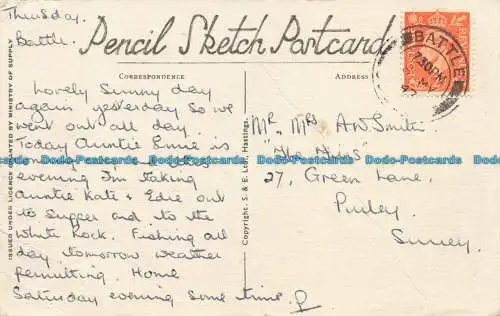 Thursday.
Battle.
Pencil Sketch Postcard.
CORRESPONDENCE
ADDRESS
BATTLE
7.30PM
MY
Lovely Sunny day
again yesterday so we
went out all day.
Today Auntie Ennie is
evening I'm taking
Auntie Kate & Edie out
to supper and to the
White Rock. Fishing all
day tomorrow weather
permitting. Home
Saturday evening some time. P
Mr & Mrs A.W. Smith
27, Green Lane,
Purley.
Surrey.
ISSUED UNDER LICENCE GRANTED BY MINISTRY OF SUPPLY
Copyright. S. & E. Ltd., Hastings.
Dodo-Postcards Dodo-Postcards Dodo-Postcards Dodo-Postcards